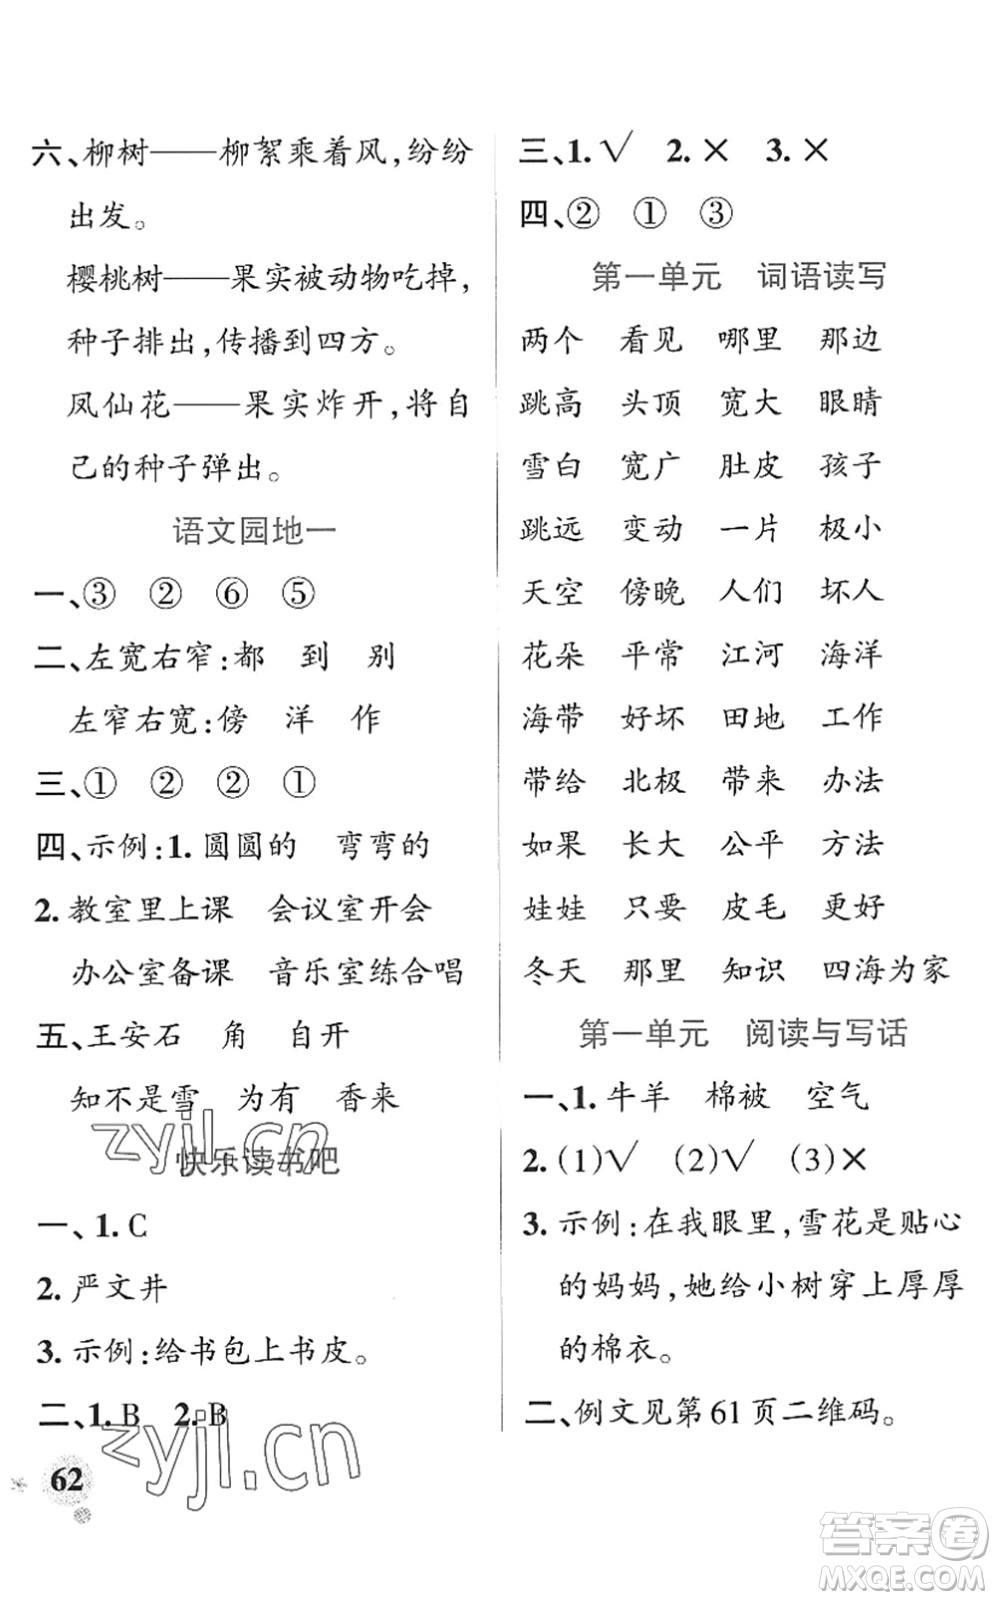 六、柳树——柳絮乘着风,纷纷
出发。
樱桃树——果实被动物吃掉,
种子排出,传播到四方。
凤仙花——果实炸开,将自
己的种子弹出。
语文园地一
一、③ ② ⑥ ⑤
二、左宽右窄:都 到 别
左窄右宽:傍 洋 作
三、① ② ② ①
四、示例:1. 圆圆的 弯弯的
2. 教室里上课 会议室开会
办公室备课 音乐室练合唱
五、王安石 角 自开
知不是雪 为有 香来
快乐读书吧
一、1. C
2. 严文井
3. 示例:给书包上书皮。
二、1. B 2. B
62
三、1. √ 2. × 3. ×
四、② ① ③
第一单元 词语读写
两个 看见 哪里 那边
跳高 头顶 宽大 眼睛
雪白 宽广 肚皮 孩子
跳远 变动 一片 极小
天空 傍晚 人们 坏人
花朵 平常 江河 海洋
海带 好坏 田地 工作
带给 北极 带来 办法
如果 长大 公平 方法
娃娃 只要 皮毛 更好
冬天 那里 知识 四海为家
第一单元 阅读与写话
一、1. 牛羊 棉被 空气
2. (1)√ (2)√ (3)×
3. 示例:在我眼里,雪花是贴心
的妈妈,她给小树穿上厚厚
的棉衣。
二、例文见第 61 页二维码。
zyjl.cn
zyjl.cn
答案卷
MXQE.COM